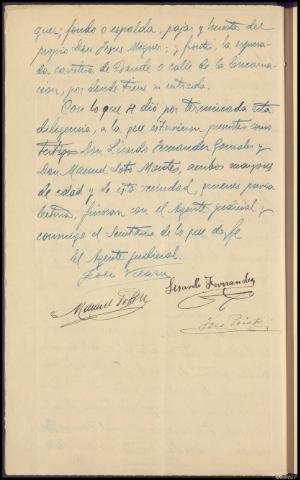 que; fondo o espalda, pajar y huerta del
propio Don Jesus Moguer; y frente, la expresa-
da carretera de Bande o calle de la Encarna-
cion, por donde tiene su entrada.
Con lo que se dió por terminada esta
diligencia, a la que estuvieron presentes como
testigos Don Lisardo Fernandez Gonzalez y
Don Manuel Soto Montes, ambos mayores
de edad y de esta vecindad, quienes previa
lectura, firman con el Agente judicial, y
conmigo el Secretario de lo que doy fe
El Agente judicial.
José
Manuel Soto Lisardo Fernandez
José